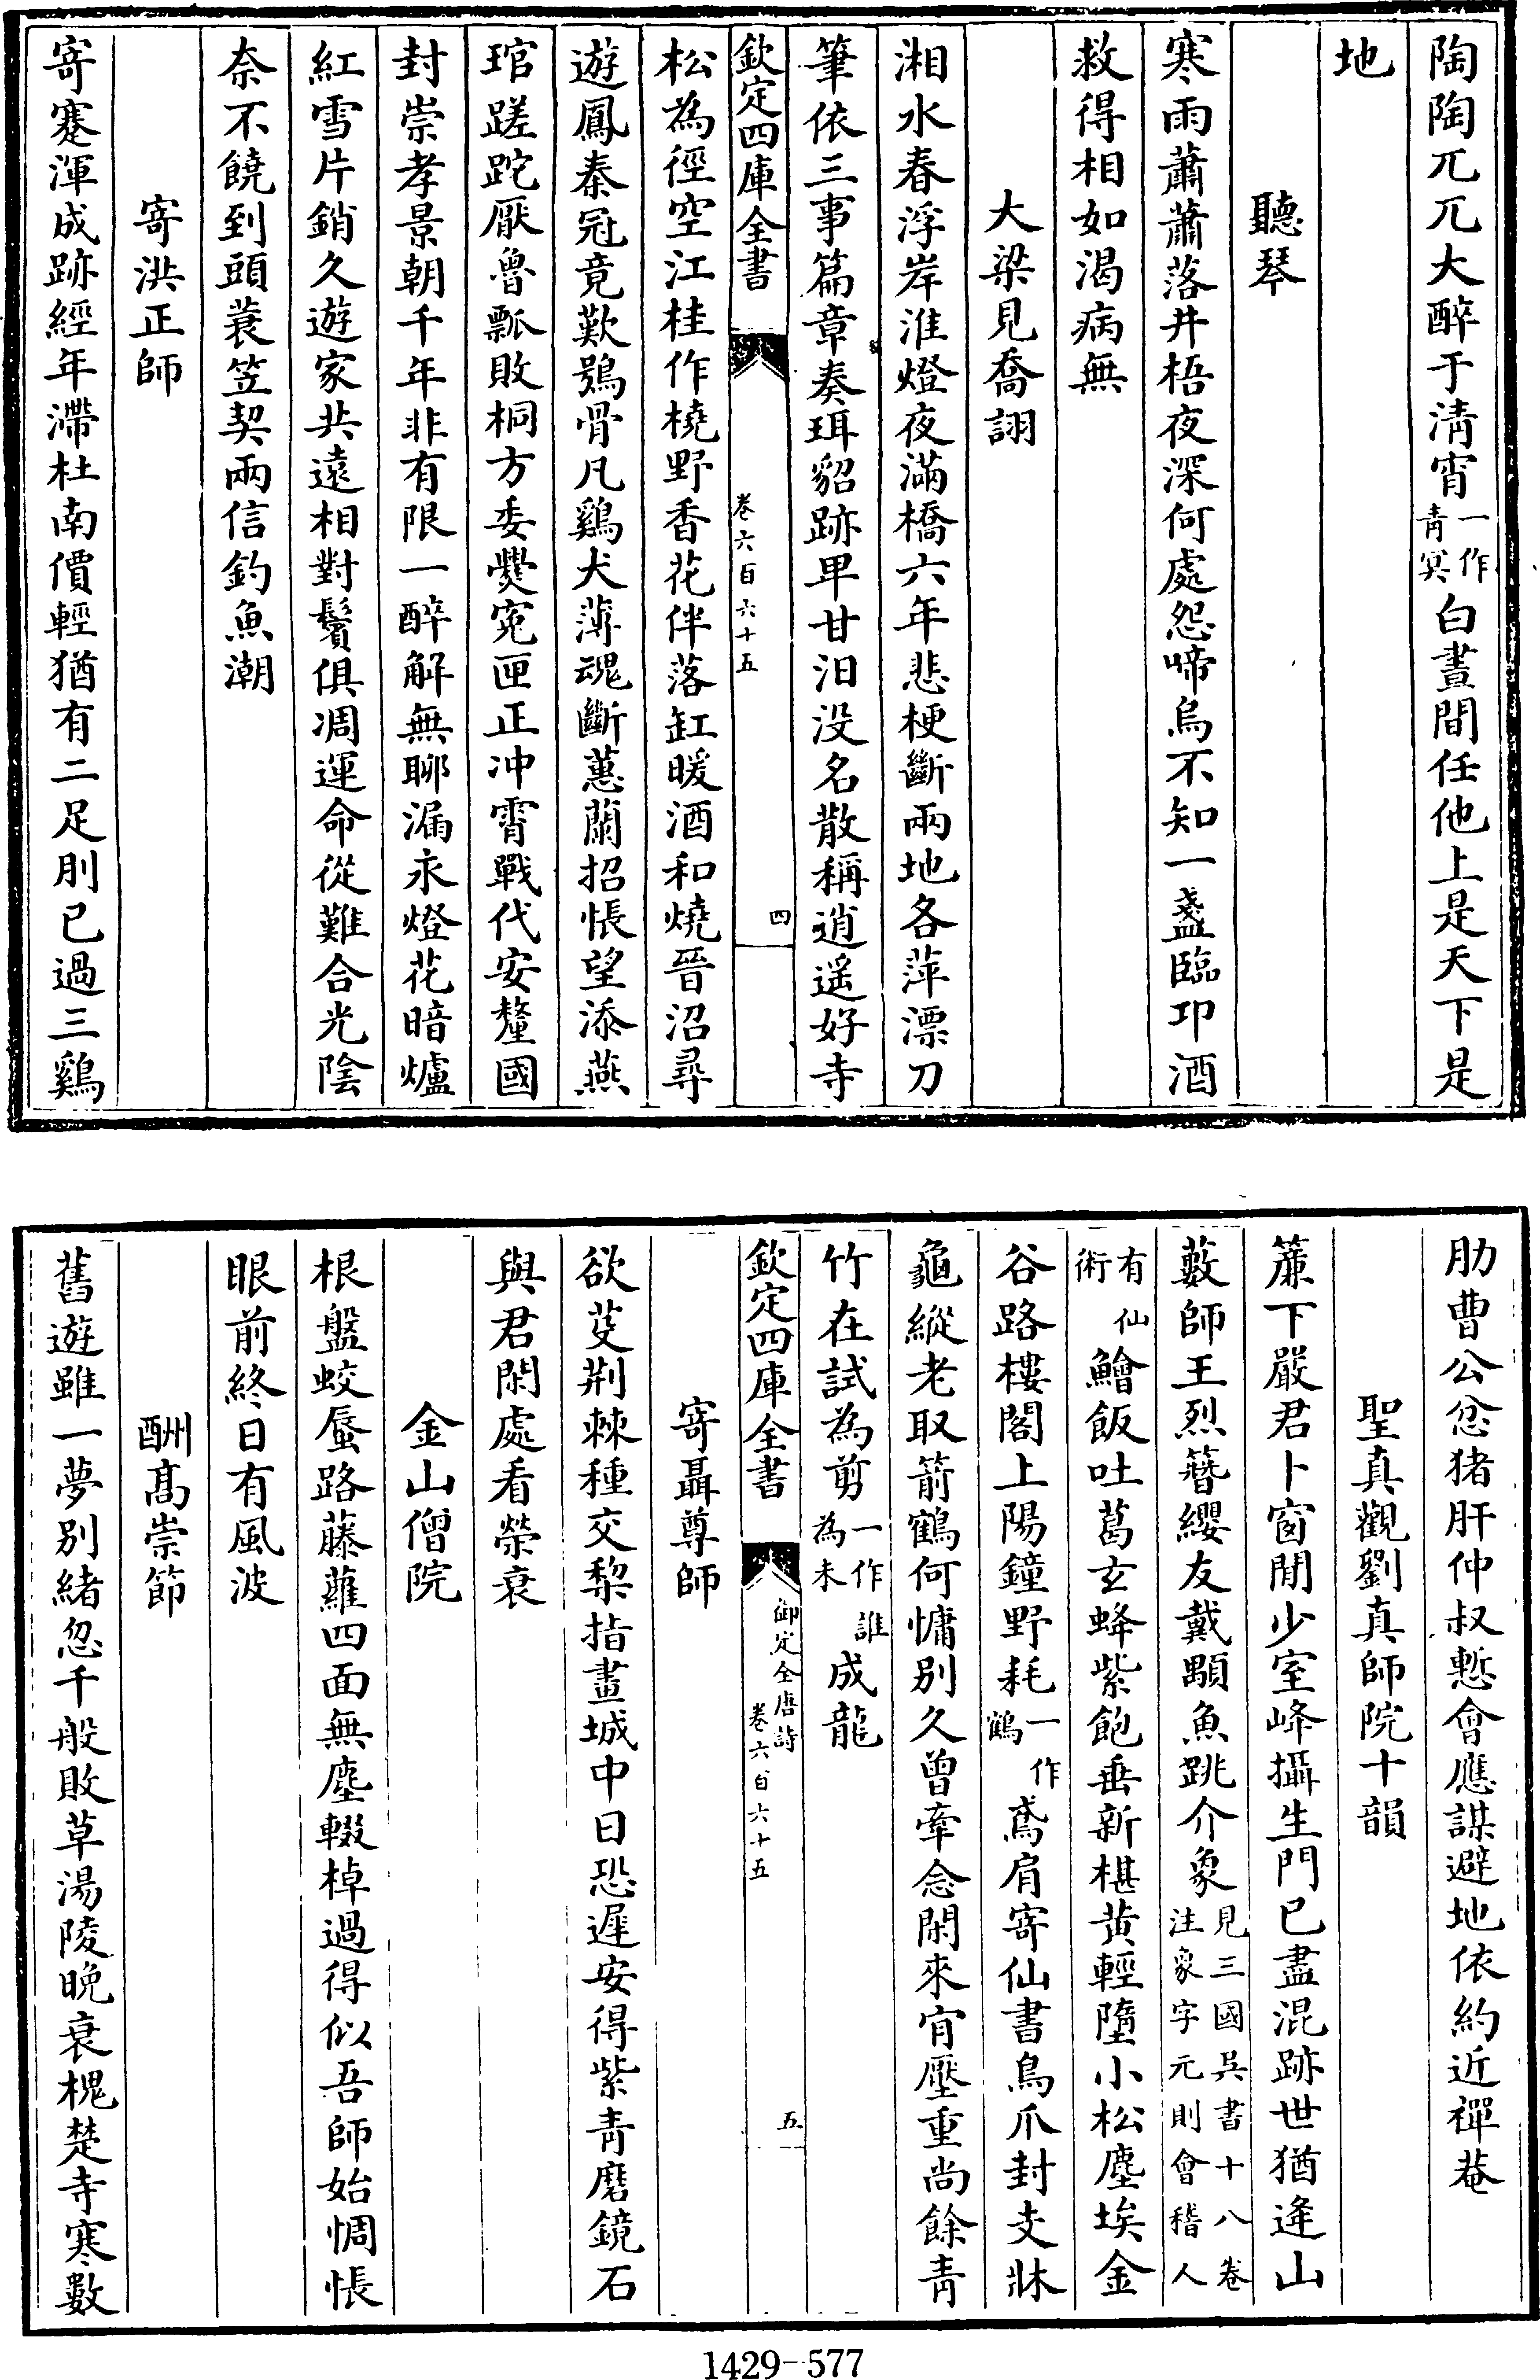 陶陶兀兀大醉于清宵一作青冥白晝間任他上是天下是
地
聽琴
寒雨蕭蕭落井梧夜深何處怨啼烏不知一盞臨卭酒
救得相如渴病無
大梁見喬詡
湘水春浮岸淮燈夜滿橋六年悲梗斷兩地各萍漂刀
筆依三事篇章奏珥貂跡卑甘汨没名散稱逍遥好寺
欽定四庫全書
卷六百六十五
四
松為徑空江桂作橈野香花伴落缸暖酒和燒晉沼尋
遊鳳秦冠竟歎鴞骨凡鷄犬薄魂斷蕙蘭招悵望添燕
琯蹉跎厭魯瓢敗桐方委爨寃匣正冲霄戰代安釐國
封崇孝景朝千年非有限一醉解無聊漏永燈花暗爐
紅雪片銷久遊家共遠相對鬢俱凋運命從難合光陰
奈不饒到頭蓑笠契兩信釣魚潮
寄洪正師
寄蹇渾成跡經年滯杜南價輕猶有二足刖已過三鷄
肋曹公忿猪肝仲叔慙會應謀避地依約近禪菴
聖真觀劉真師院十韻
簾下嚴君卜窗間少室峰攝生門已盡混跡世猶逢山
藪師王烈簪纓友戴顒魚跳介象見三國吳書十八卷注象字元則會稽人
有仙術鱠飯吐葛玄蜂紫飽垂新椹黄輕墮小松塵埃金
谷路樓閣上陽鐘野耗一作鶴鳶肩寄仙書鳥爪封支牀
龜縱老取箭鶴何慵别久曾牽念閑來肯壓重尚餘青
竹在試為剪一作誰為未成龍
欽定四庫全書
御定全唐詩
卷六百六十五
五
寄聶尊師
欲芟荆棘種交棃指畫城中日恐遲安得紫青磨鏡石
與君閑處看榮衰
金山僧院
根盤蛟蜃路藤蘿四面無塵輟棹過得似吾師始惆悵
眼前終日有風波
酬髙崇節
舊遊雖一夢别緒忽千般敗草湯陵晚衰槐楚寺寒數
1429-577